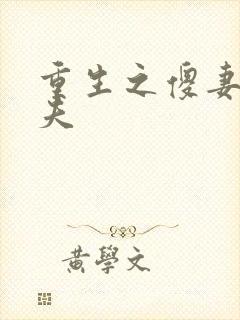 重生之傻妻
夫
黃學文